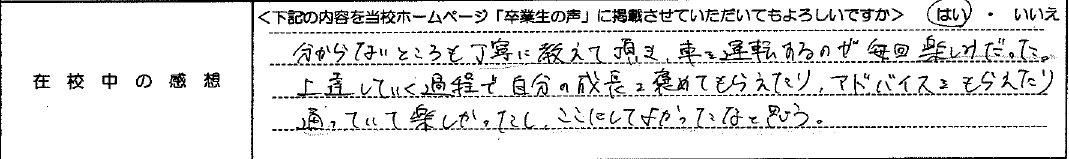 <下記の内容を当校ホームページ「卒業生の声」に掲載させていただいてもよろしいですか> はい ・ いいえ
在校中の感想
分からないところも丁寧に教えて頂き、車を運転するのが毎回楽しみだった。
上達していく過程で自分の成長を褒めてもらえたり、アドバイスをもらえたり
通っていて楽しかったし、ここにしてよかったなと思う。